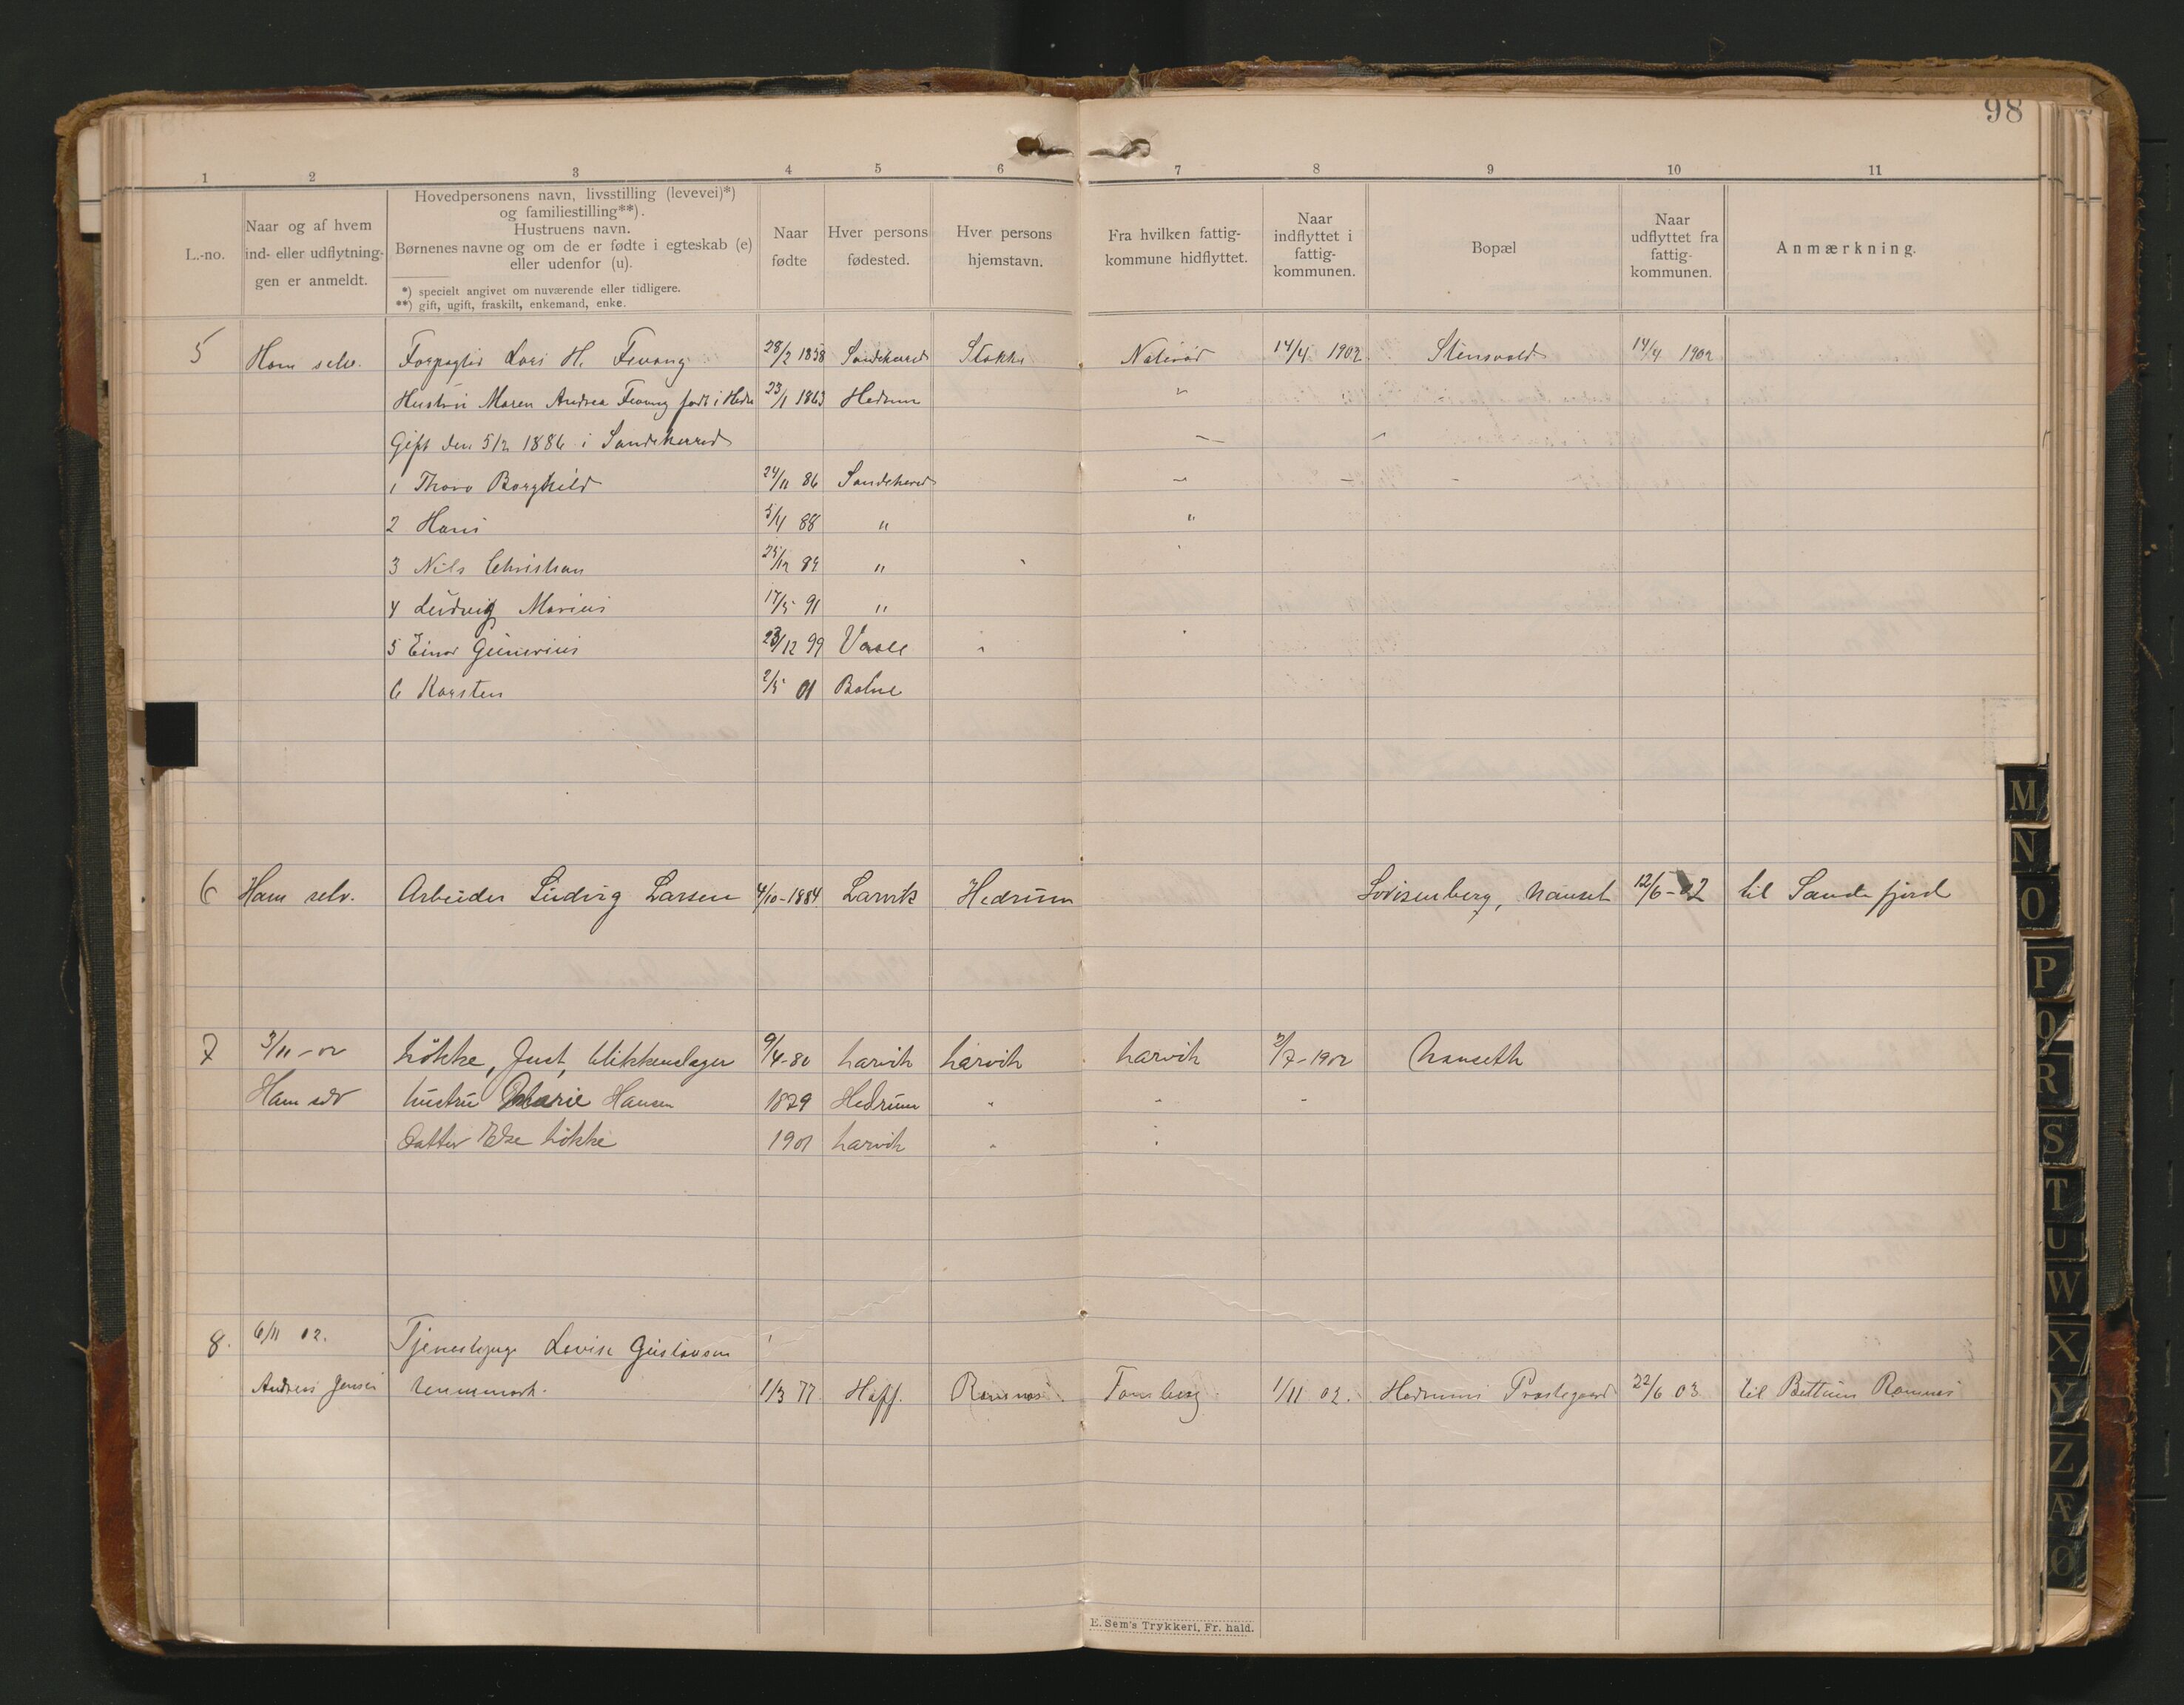 98
1 2 3 4 5 6 7 8 9 10 11
L.-no.
Naar og af hvem
ind- eller udflytnin-
gen er anmeldt.
Hovedpersonens navn, livsstilling (levevei)*)
og familiestilling**).
Hustruens navn.
Børnenes navne og om de er fødte i egteskab (e)
eller udenfor (u).
*) specielt angivet om nuværende eller tidligere.
**) gift, ugift, fraskilt, enkemand, enke.
Naar
fødte
Hver persons
fødested.
Hver persons
hjemstavn.
Fra hvilken fattig-
kommune hidflyttet.
Naar
indflyttet i
fattig-
kommunen.
Bopæl
Naar
udflyttet fra
fattig-
kommunen.
Anmærkning.
5 Ham selv. Forpagter Lars H. Fevang 28/2 1858 Sandeherred Stokke 14/4 1902 Stensvold 14/4 1902
Hustru Maren Andrea Fevang født i Hedr 23/1 1863 Hedrum "
Gift den 5/2 1886 i Sandeherred
1 Thora Borghild 24/11 86 Sandeherred
2 Hans 5/4 88 " "
3 Nils Christian 25/12 89 "
4 Ludvig Marius 17/5 91 "
5 Einar Gunerius 23/12 99 Vaale
6 Karsten 2/5 01 Botne
6 Ham selv. Arbeider Ludvig Larsen 4/10-1884 Larvik Hedrum Lovisenberg, Nanset 12/6-02 til Sandefjord
7 3/11-02 Løkke, Just, blikkenslager 9/4-80 Larvik Larvik Larvik 2/7-1902 Nanseth
Ham selv hustru Marie Hansen 1879 Hedrum " " "
Datter Else Løkke 1901 Larvik " "
8. 6/11 02. Tjenestepige Lovise Gustavsen
Andreas Jensen 1/3 77. Hoff. Ramnæs. Tønsberg 1/11 02. Hedrums Prestegaard 22/6 03 til Bettum Ramnes
E. Sem's Trykkeri, Fr.hald.
M
N
O
P
Q
R
S
T
U
W
X
Y
Z
Æ
Ø